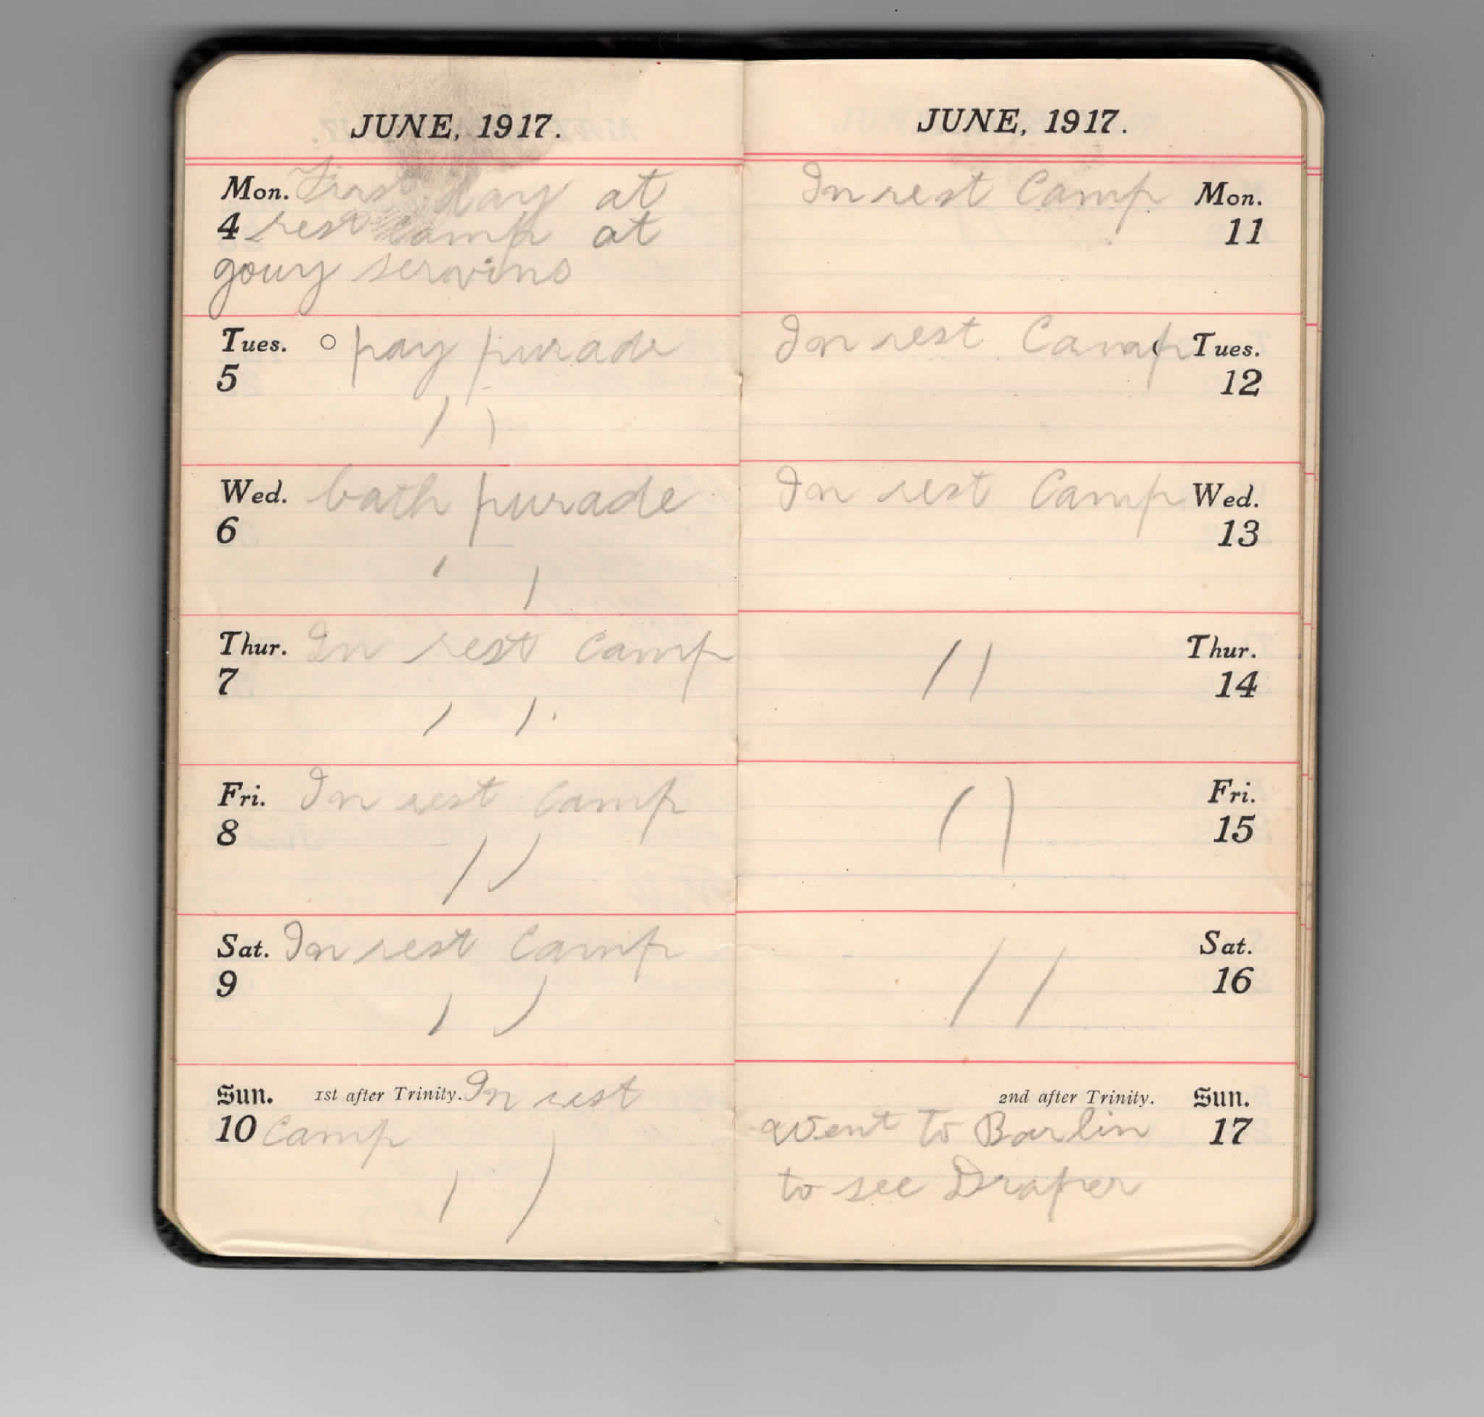 JUNE, 1917.
Mon. First day at
4 rest camp at
gouy servins
Tues. pay purade
5
" "
Wed. bath purade
6
" "
Thur. In rest camp
7
" "
Fri. In rest camp
8
" "
Sat. In rest Camp
9
" "
Sun. 1st after Trinity. In rest
10 Camp
" "
JUNE, 1917.
In rest Camp Mon.
11
In rest Camp Tues.
12
In rest Camp Wed.
13
" " Thur.
14
" " Fri.
15
" " Sat.
16
2nd after Trinity. Sun.
went to Barlin 17
to see Draper